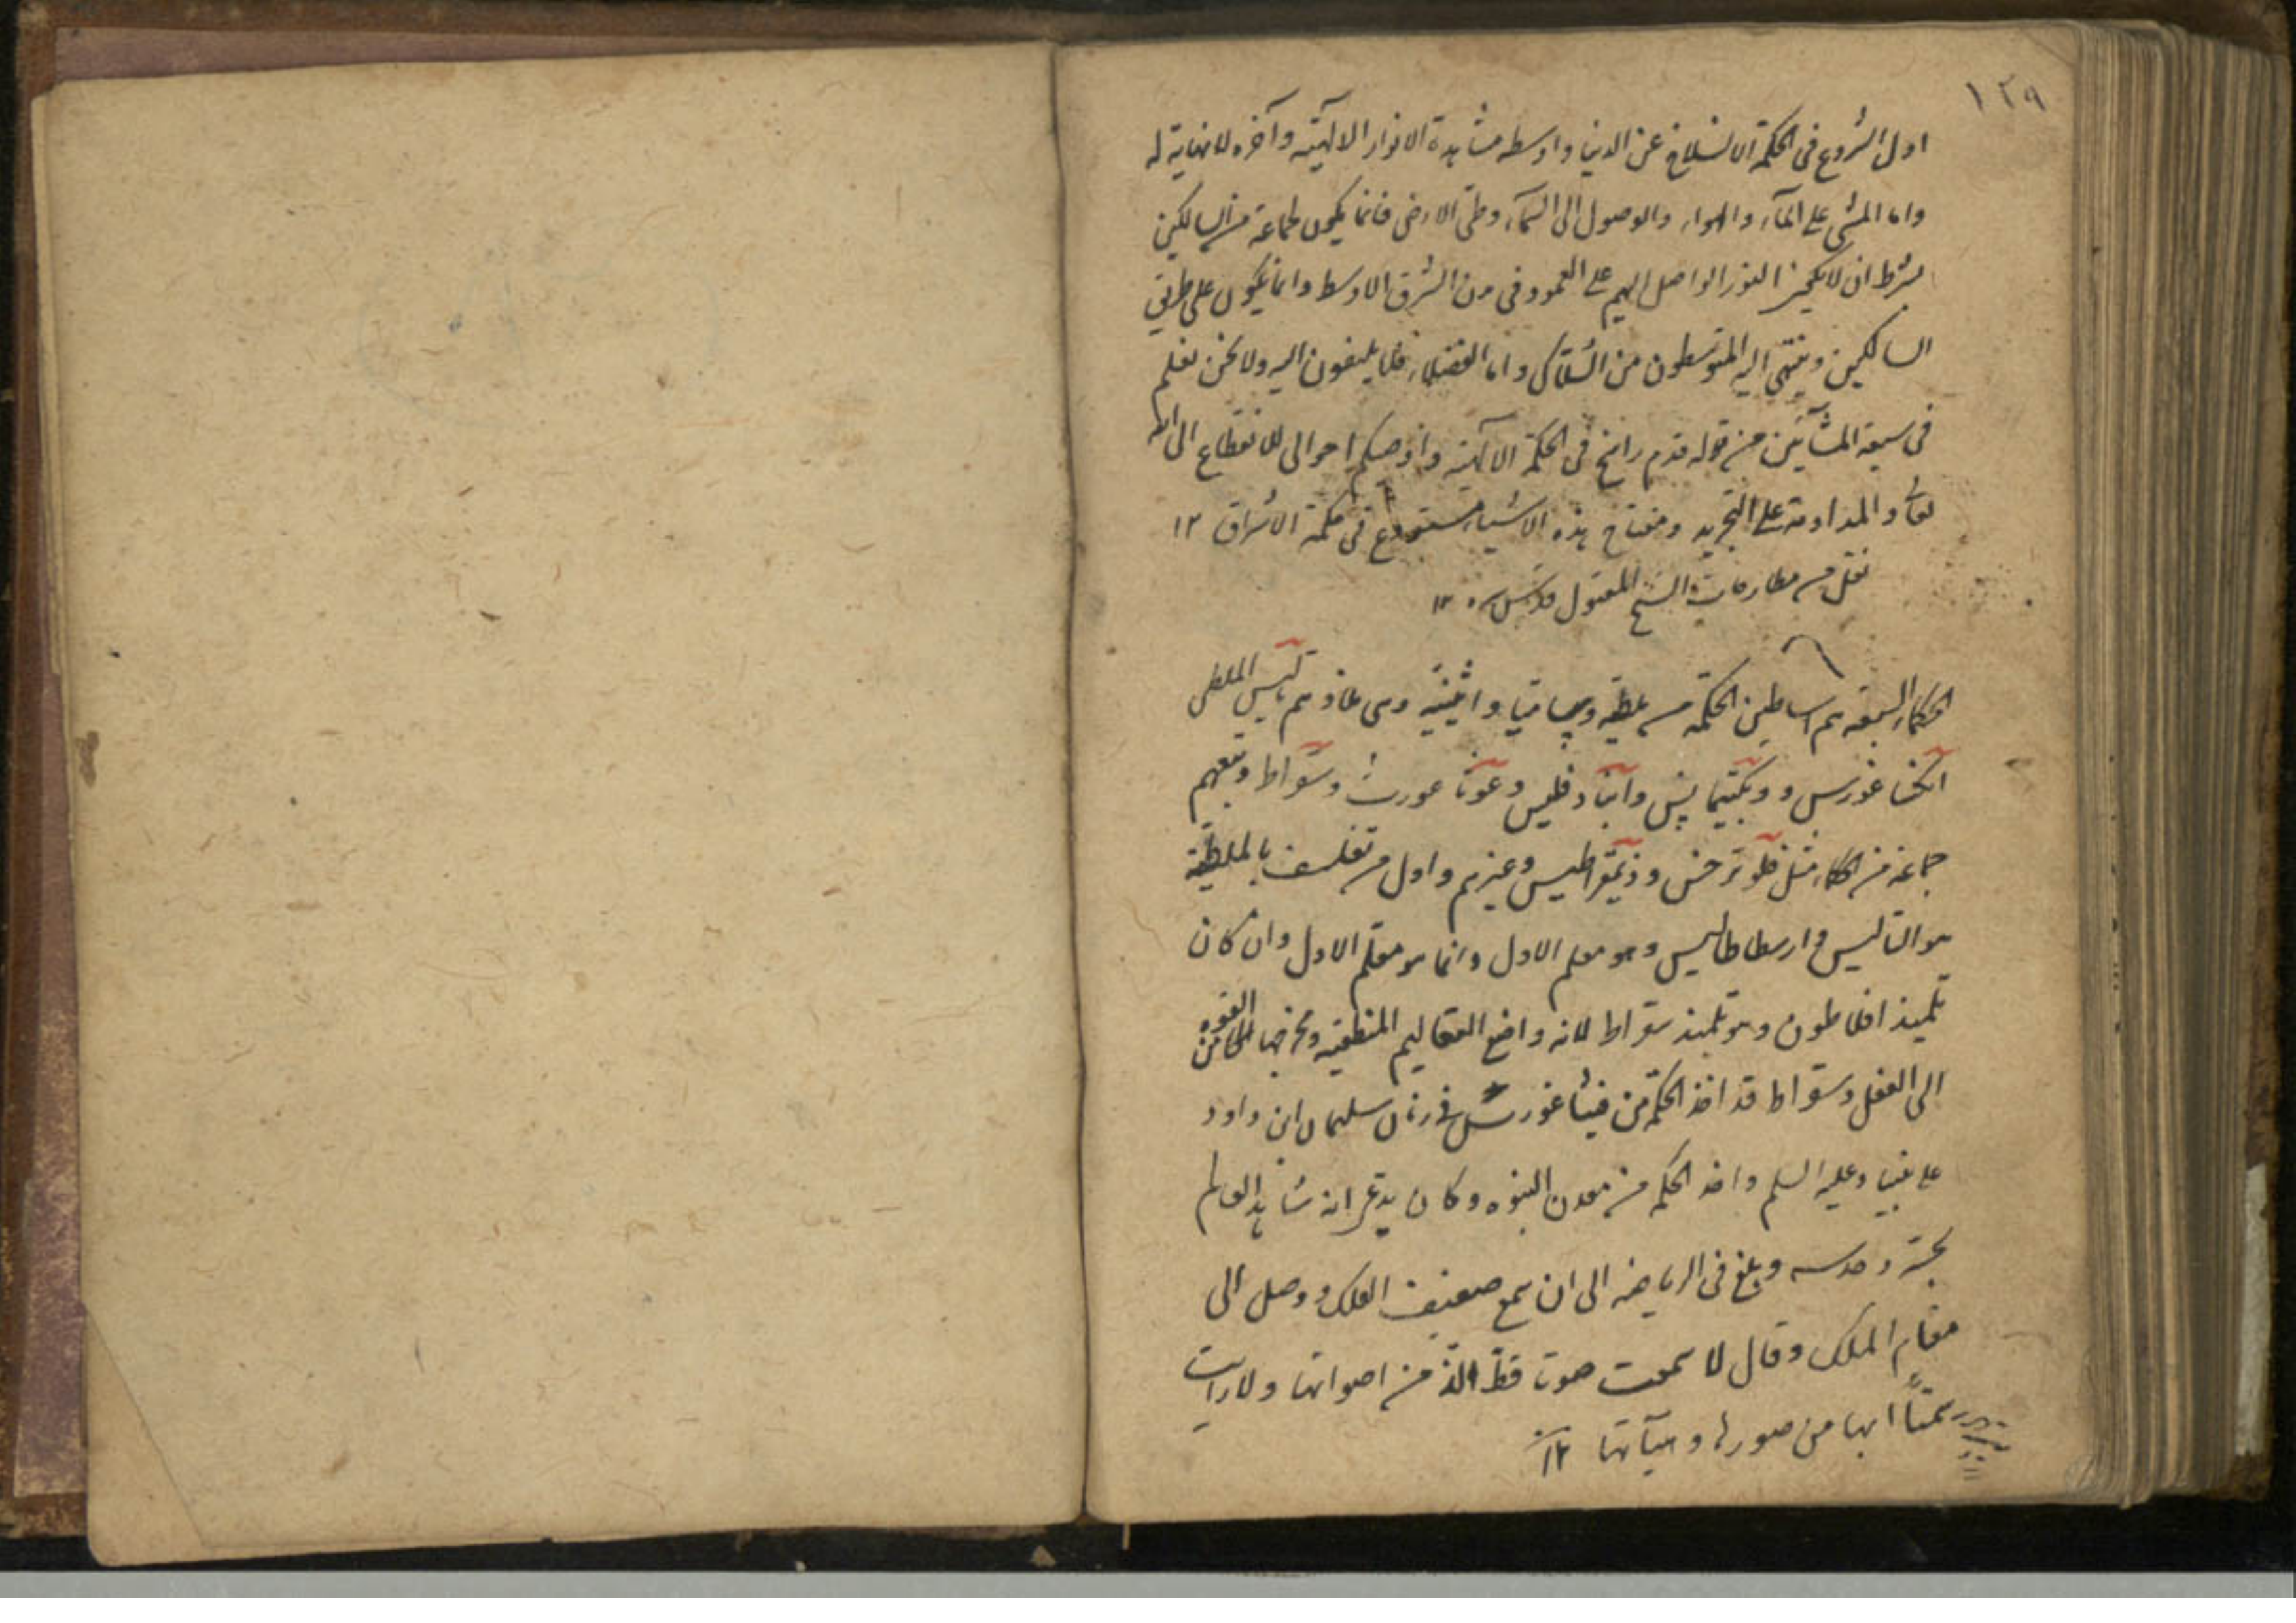 ١٢٩
اول الشروع فى الحكمة الانسلاخ عن الدنيا واوسطه مشاهدة الانوار الالهية وآخره لا نهاية له
واما المشى على المآء والهواء والوصول الى السمآء وطى الارض فانما يكون لجماعة من السالكين
بشرط ان لا يكون النور الواصل اليهم على العمود فى مدن الشرق الاوسط وانما يكون على طريق
السالكين وينتهى اليه المتوسطون من السلاك واما الفضلاء فلا يلتفتون اليه ولا نحن نعلم
فى شيعة المشآئين من قوله قدم راسخ فى الحكمة الالهية واوصيكم اخوانى للانقطاع الى الله
تعالى والمداومة على التجريد ومفتاح هذه الاشياء مستودع فى حكمة الاشراق ١٢
نقل من مطارحات الشيخ المقتول قدس سره ١٢
الحكماء السبعة هم اساطين الحكمة من ملطيه وساميا واثينيه وهى بلادهم تاليس الملطى
انكساغورس و وانبادقليس و وسقراط وتبعهم
جماعة من الحكماء مثل فلوترخس وذيمقراطيس وغيرهم واول من تفلسف بالملطية
هو التاليس وارسطاطاليس وهو معلم الاول وانما هو معلم الاول وان كان
تلميذ افلاطون وهو تلميذ سقراط لانه واضع التعاليم المنطقيه ومخرجها من القوه
الى الفعل وسقراط قد اخذ الحكمة من فيثاغورس فى زمان سليمان ابن داود
على نبينا وعليه السلم واخذ الحكمه من معدن النبوه وكان يدعى انه شاهد العالم
بحسه وحدسه وبلغ فى الرياضه الى ان سمع صفيف الفلك ووصل الى
مقام الملك وقال لا سمعت صوت قط الذ من اصواتها ولا رايت
ابها من صورها وهيآتها ١٢